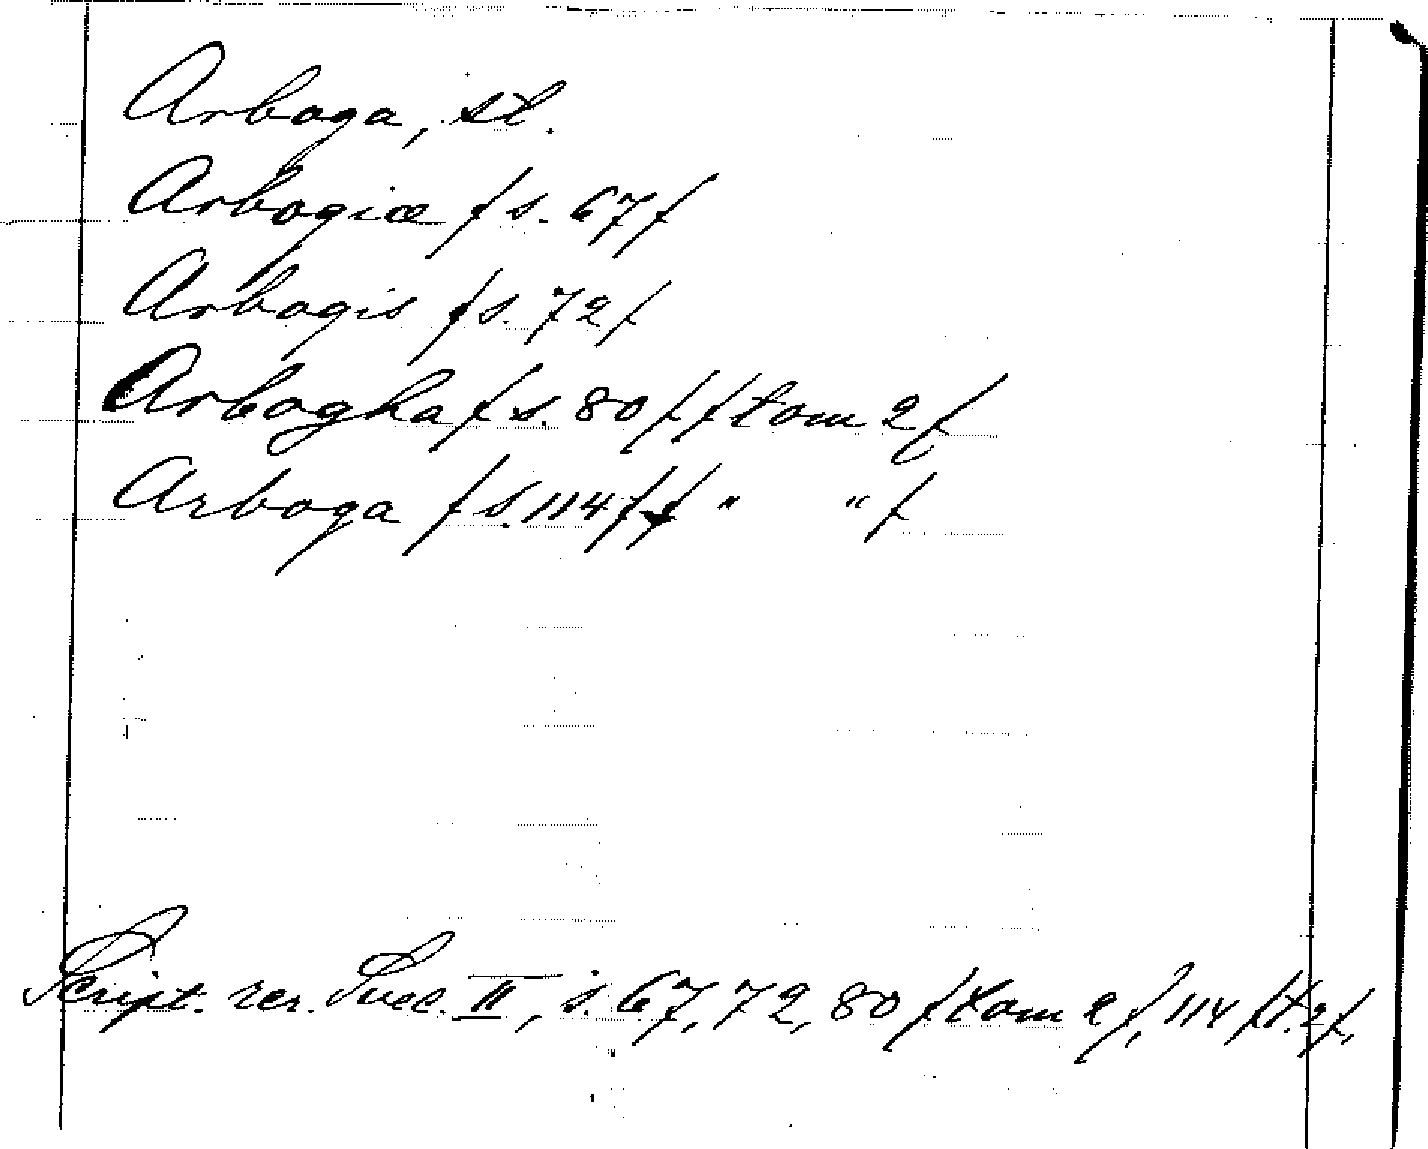 Arboga, st.
Arbogiæ / s. 67 /
Arbogis / s. 72 /
Arbogha / s. 80 / / tom 2 /
Arboga / s. 114 / / " " /
Script. rer. Svec. II, s. 67, 72, 80 / tom 2 /, 114 / t. 2 /.